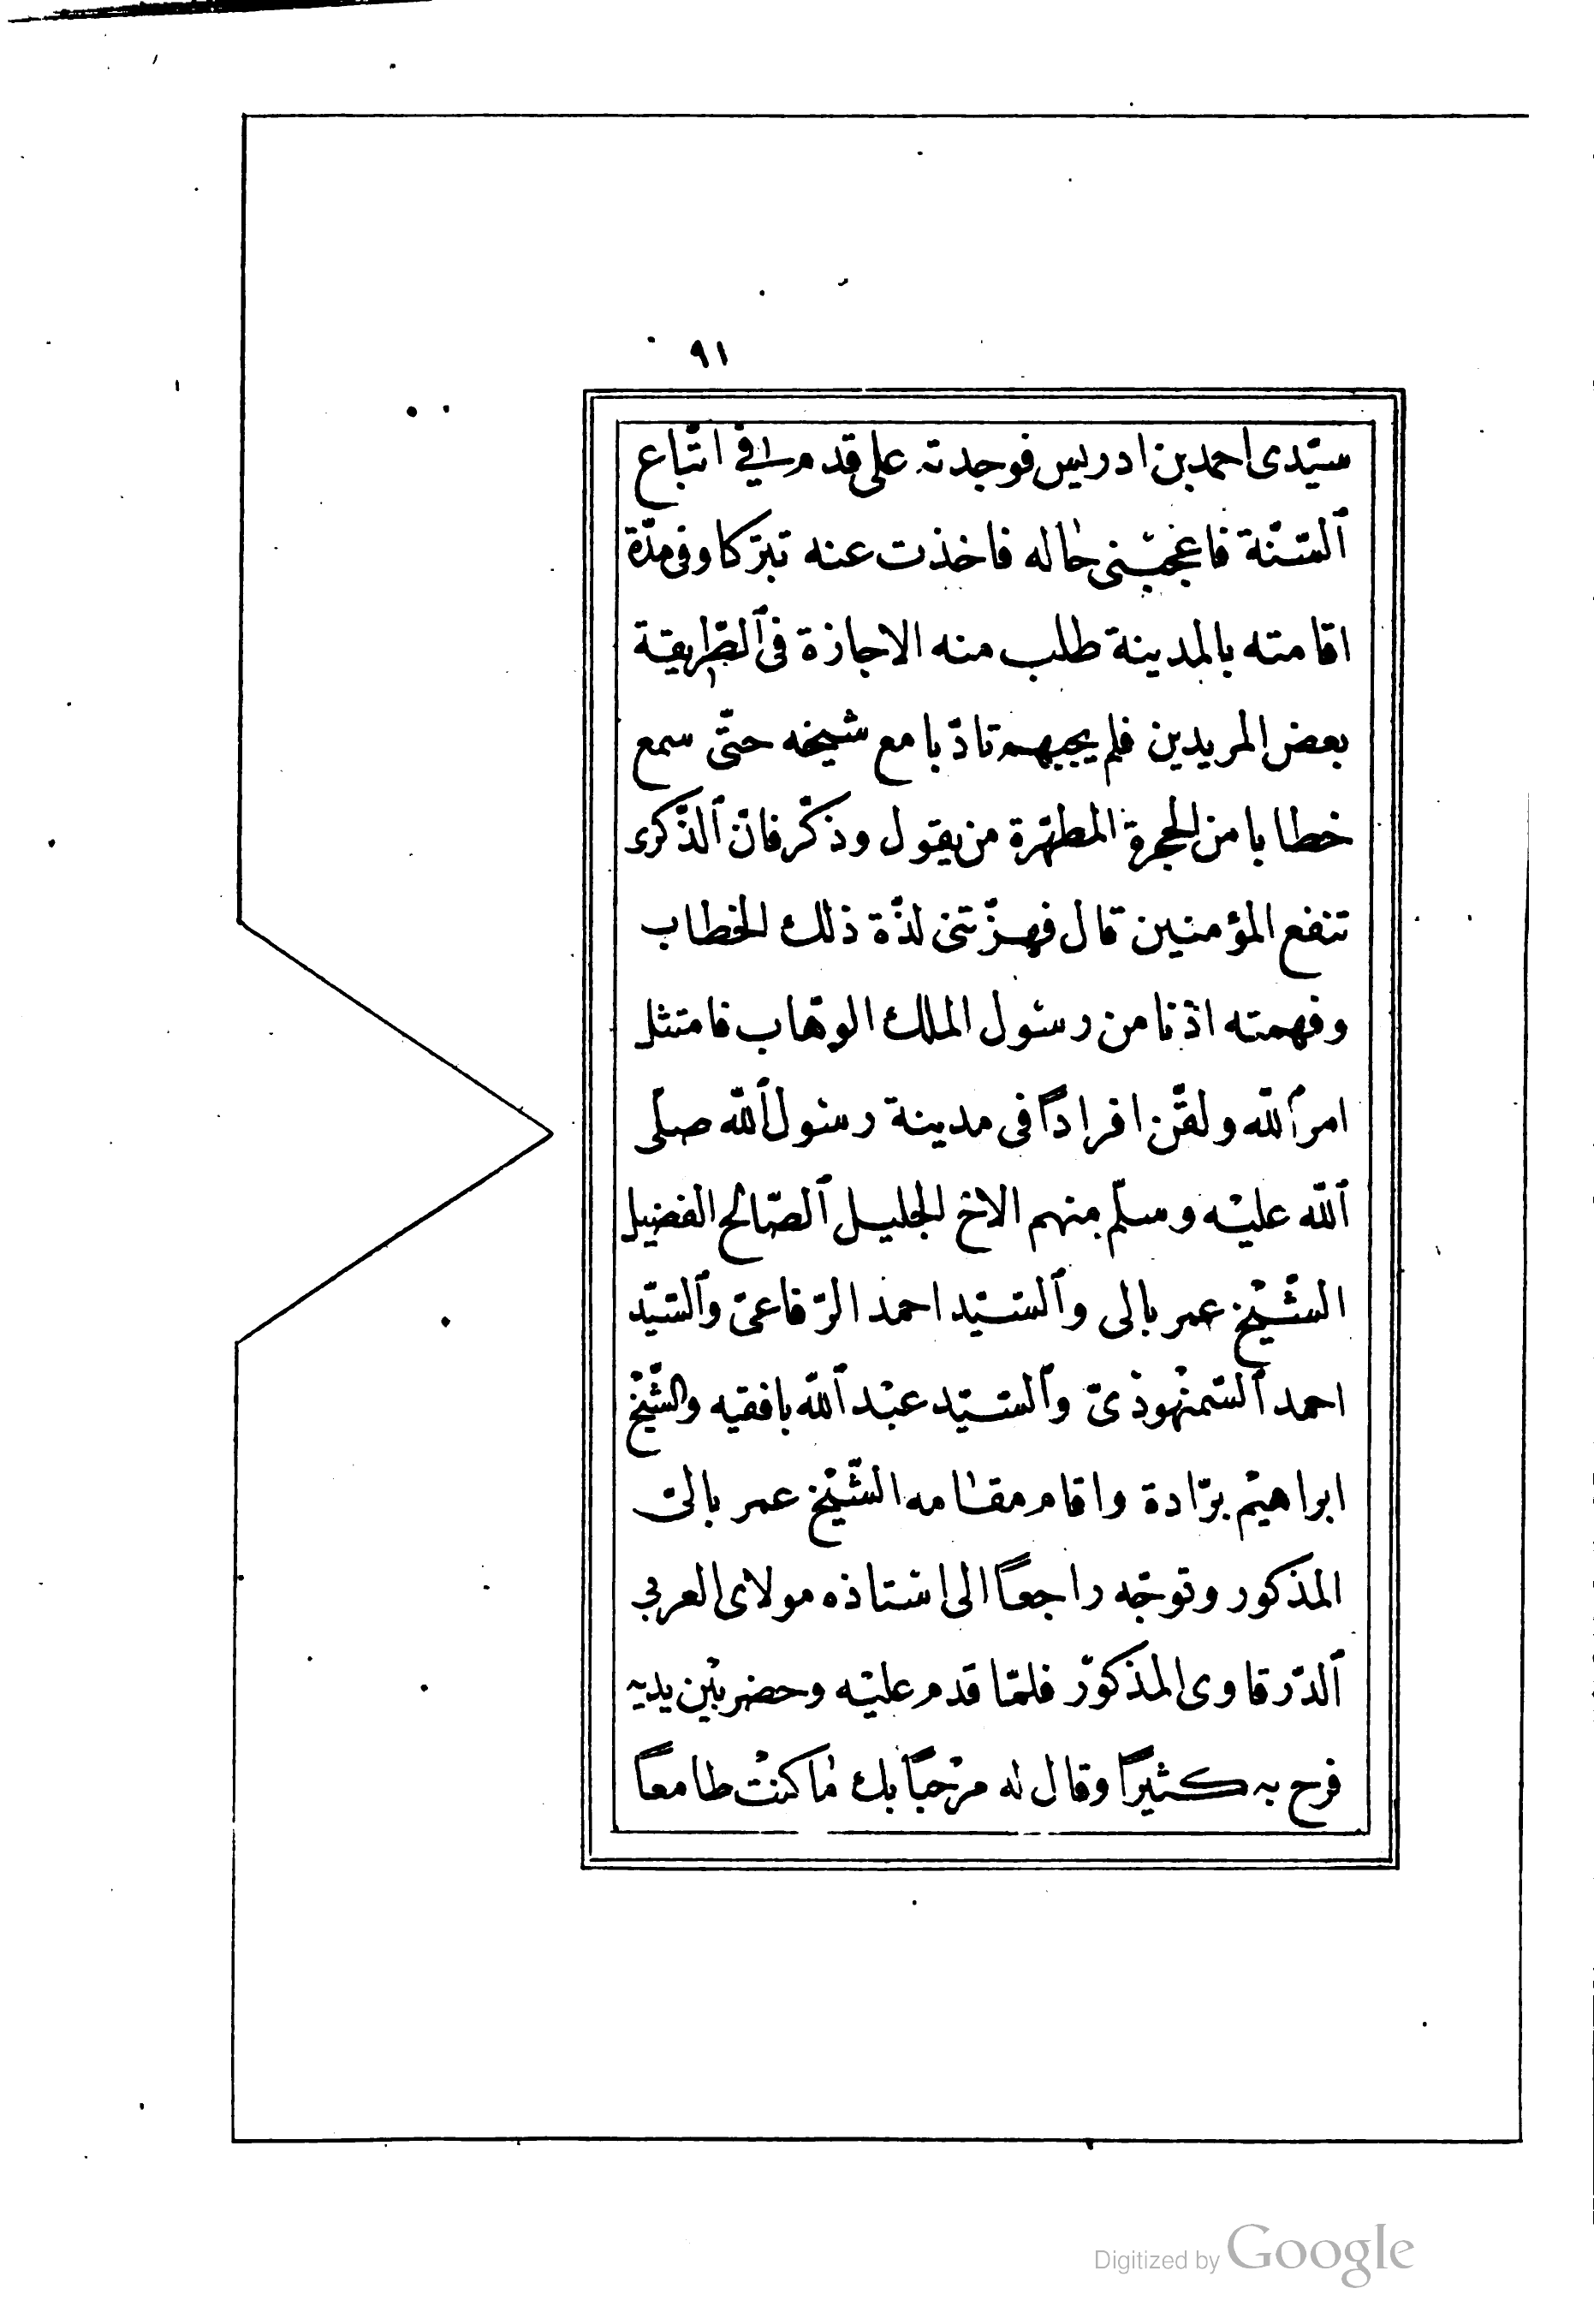 ٩١
سيّدى احمد بن ادريس فوجدته على قدم راسخ فى اتّباع
ٱلسّنّة فاعجبنى حاله فاخذت عنه تبرّكا وفى مدّة
اقامته بالمدينة طلب منه الاجازة فى ٱلطّريقة
بعض المريدين فلم يجبهم تادّبا مع شيخه حتّى سمع
خطابا من الحجرة المطهّرة من يقول وذكّر فانّ ٱلذّكرى
تنفع المؤمنين قال فهزّتنى لذّة ذلك الخطاب
وفهمته اذنا من رسول الملك الوهّاب فامتثل
امر ٱللّه ولقّن افراداً فى مدينة رسول ٱللّه صلّى
ٱللّه عليه وسلّم منهم الاخ الجليل ٱلصّالح الفضيل
الشّيخ عمر بالى وٱلسّيّد احمد الرّفاعىّ وٱلسّيّد
احمد ٱلسّمنهودىّ وٱلسّيّد عبد ٱللّه بافقيه والشّيخ
ابراهيم برّادة واقام مقامه الشّيخ عمر بالى
المذكور وتوجّه راجعاً الى استاذه مولاى العربى
ٱلدّرقاوى المذكور فلمّا قدم عليه وحضر بين يديه
فرح به كثيراً وقال له مرحباً بك ما كنت طامعاً
Digitized by Google